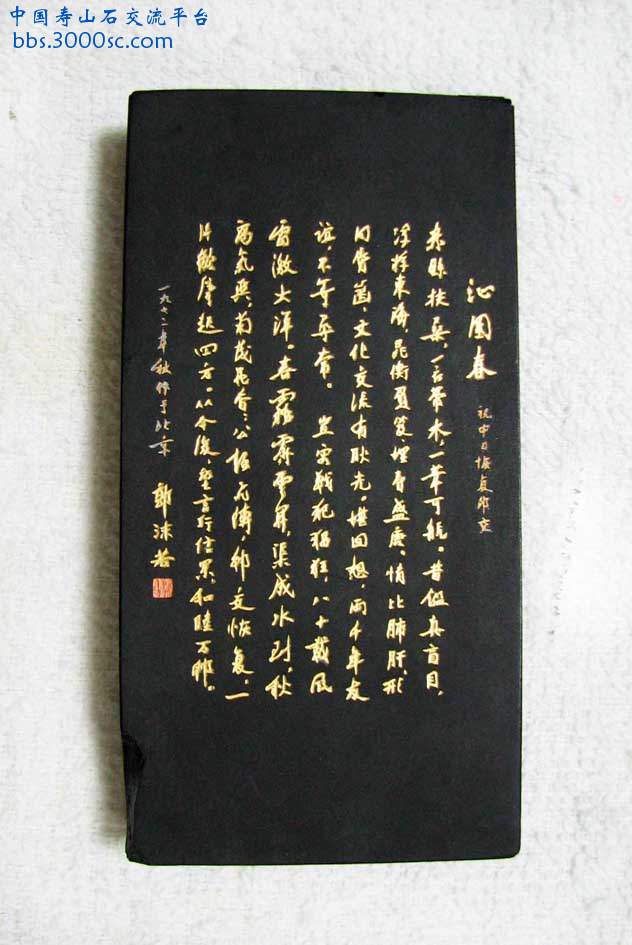 中国寿山石交流平台
bbs.3000sc.com
沁园春 祝中日恢复邦交
赤縣扶桑，一衣带水，一苇可航。昔鑑真盲目，
浮桴東海，晁衡負笈，埋骨盛唐，情比肺肝，形
同唇齒，文化交流有耿光。堪回想，两千年友
谊，不等寻常。 岂容战犯猖狂，八十載风
雷激大洋。喜霧霽雲開，渠成水到，秋
高气爽，菊茂花香；公报飞傳，邦交恢复，一
片歡声起四方。从今後，望言行信果，和睦万邦。
一九七二年秋作于北京 郭沫若